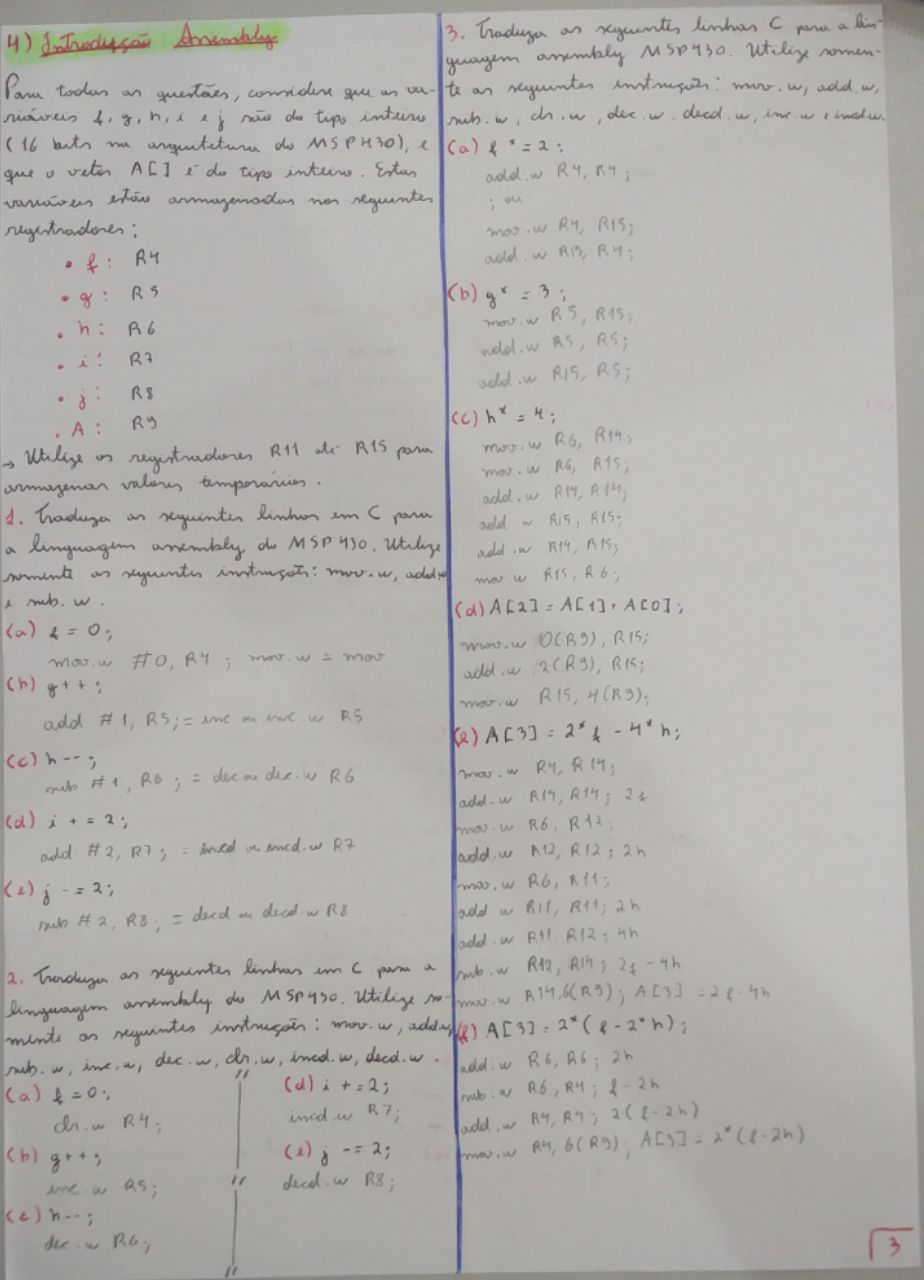 4) Introdução Assembly
Para todas as questões, considere que as var-
riáveis f, g, h, i e j são do tipo inteiro
(16 bits na arquitetura do MSP430), e
que o vetor A[] é do tipo inteiro. Estas
variáveis estão armazenadas nos seguintes
registradores:
• f: R4
• g: R5
• h: R6
• i: R7
• j: R8
• A: R9
→ Utilize os registradores R11 até R15 para
armazenar valores temporários.
1. Traduza as seguintes linhas em C para
a linguagem assembly do MSP430. Utilize
somente as seguintes instruções: mov.w, add.w
e sub.w.
(a) f = 0;
mov.w #0, R4 ; mov.w = mov
(b) g++;
add #1, R5; = inc ou inc.w R5
(c) h--;
sub #1, R6 ; = dec ou dec.w R6
(d) i += 2;
add #2, R7; = incd ou incd.w R7
(e) j -= 2;
sub #2, R8; = decd ou decd.w R8
2. Traduza as seguintes linhas em C para a
linguagem assembly do MSP430. Utilize so-
mente as seguintes instruções: mov.w, add.w,
sub.w, inc.w, dec.w, clr.w, incd.w, decd.w.
(a) f = 0;
clr.w R4;
(b) g++;
inc.w R5;
(c) h--;
dec.w R6;
(d) i += 2;
incd.w R7;
(e) j -= 2;
decd.w R8;
3. Traduza as seguintes linhas C para a lin-
guagem assembly MSP430. Utilize somen-
te as seguintes instruções: mov.w, add.w,
sub.w, clr.w, dec.w. decd.w, inc.w e incd.w.
(a) f* = 2;
add.w R4, R4;
; ou
mov.w R4, R15;
add.w R15, R4;
(b) g* = 3;
mov.w R5, R15;
add.w R5, R5;
add.w R15, R5;
(c) h* = 4;
mov.w R6, R14;
mov.w R6, R15;
add.w R14, R14;
add w R15, R15;
add.w R14, R15;
mov w R15, R6;
(d) A[2] = A[1] + A[0];
mov.w 0(R9), R15;
add.w 2(R9), R15;
mov.w R15, 4(R9);
(e) A[3] = 2*f - 4*h;
mov.w R4, R14;
add.w R14, R14; 2f
mov.w R6, R12;
add.w R12, R12; 2h
mov.w R6, R11;
add w R11, R11; 2h
add.w R11 R12; 4h
sub.w R12, R14; 2f - 4h
mov.w R14, 6(R9); A[3] = 2f - 4h
(f) A[3] = 2*(f - 2*h);
add.w R6, R6; 2h
sub.w R6, R4; f - 2h
add.w R4, R4; 2(f - 2h)
mov.w R4, 6(R9); A[3] = 2*(f - 2h)
3